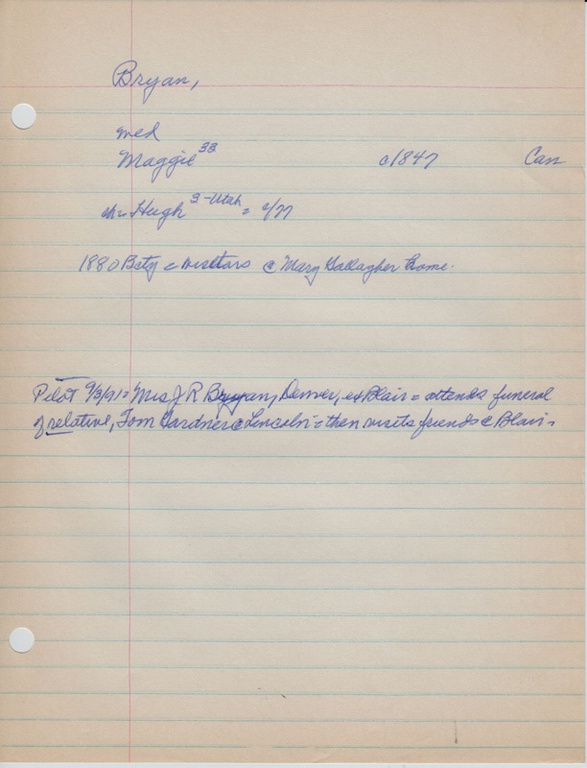 Bryan,
med
Maggie 33 c1847 Can
ch = Hugh 3-Utah = c/77
1880 Bcty = visitors @ Mary Gallagher home.
Pilot 9/3/91 = Mrs J R Bryan, Denver, ex Blair = attends funeral
of relative, Tom Gardner @ Lincoln = then visits friends @ Blair.